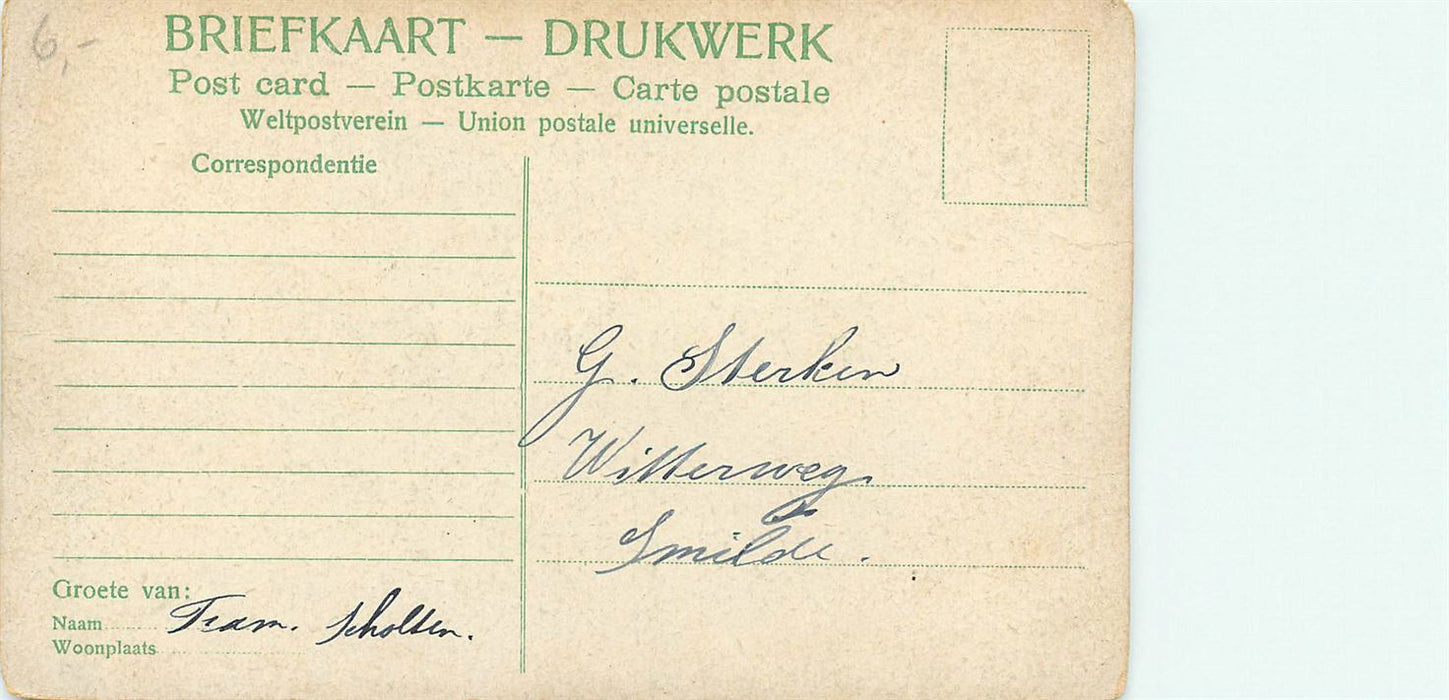 6,-
BRIEFKAART — DRUKWERK
Post card — Postkarte — Carte postale
Weltpostverein — Union postale universelle.
Correspondentie
G. Sterken
Witterweg
Smilde.
Groete van:
Naam Fam. Scholten.
Woonplaats